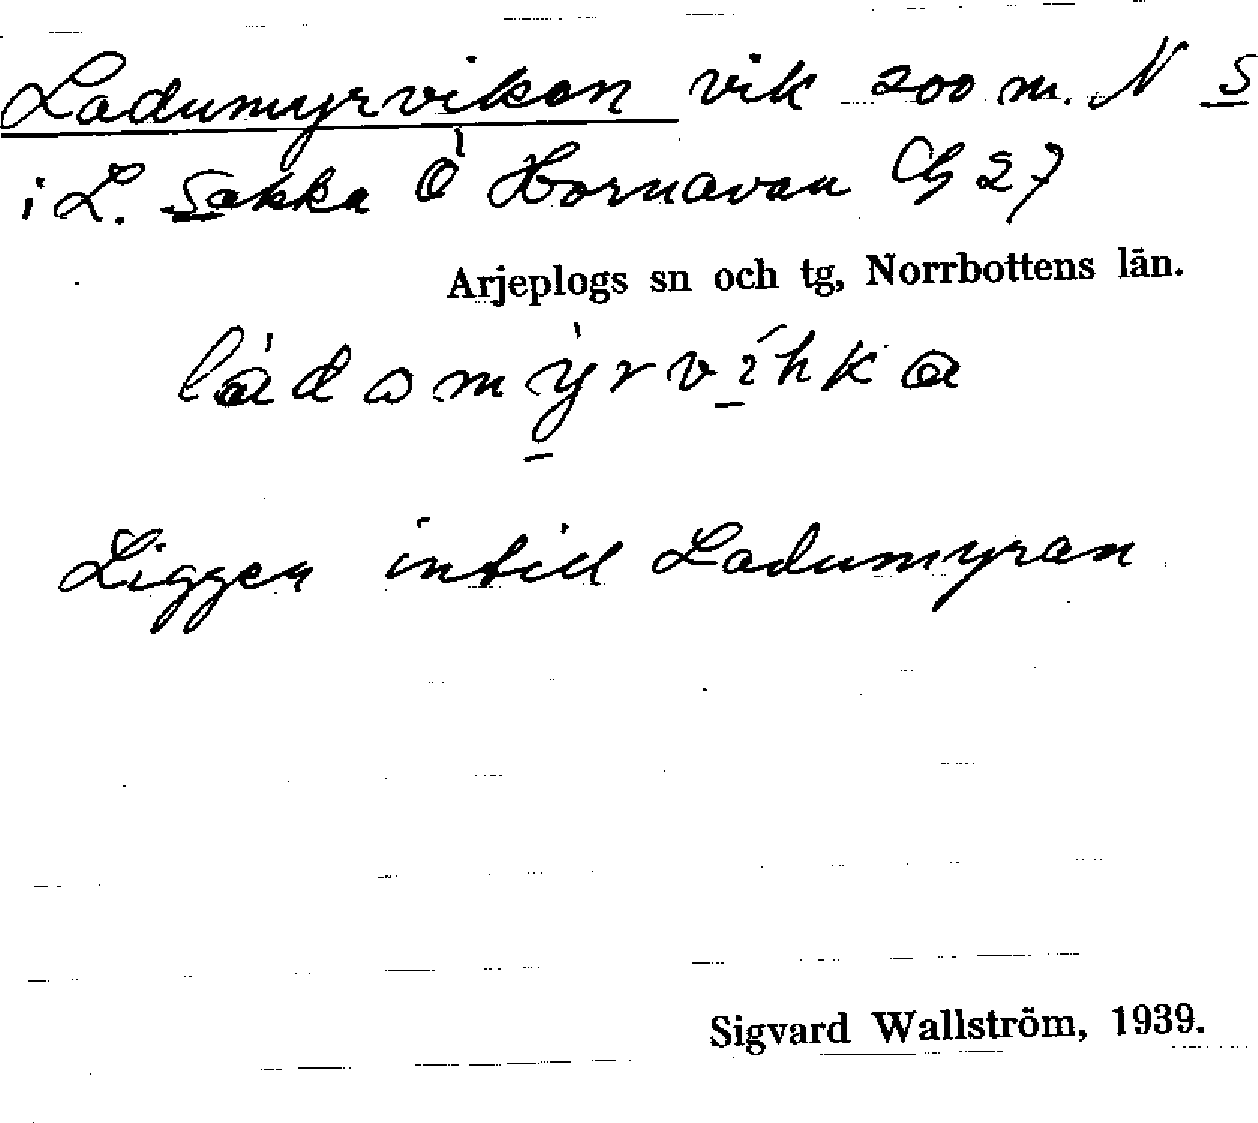 Ladumyrviken vik 200 m. N S
i L. Sakka Ö Hornavan G 27
Arjeplogs sn och tg, Norrbottens län.
ládomýrvíhka
Ligger intill Ladumyran
Sigvard Wallström, 1939.